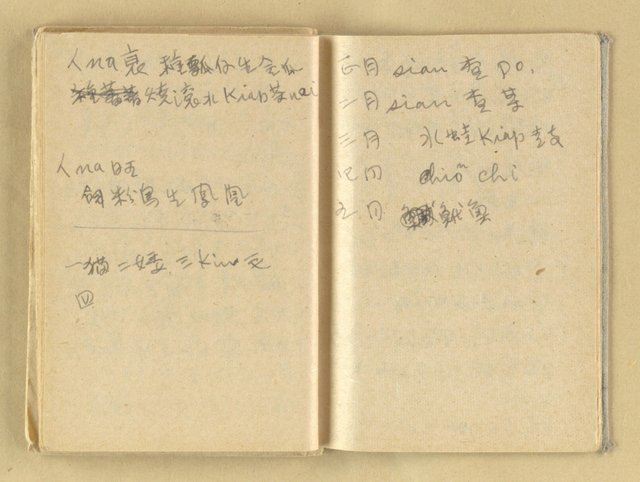 人na衰 種瓠仔生金瓜
燒滾水kiap草nai
人na旺
飼粉鳥生鳳凰
一貓 二矮 三kim 死
四
正月 sian 查 po.
二月 sian 查某
三月 水蛙kiap鼓
四月 chioⁿ chi
五月 魚